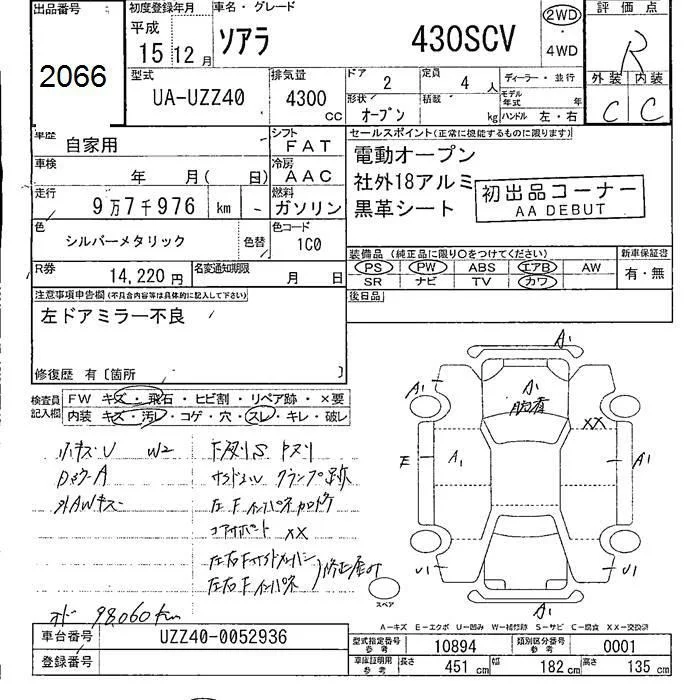 出品番号
2066
初度登録年月
平成
15 12月
車名・グレード
ソアラ 430SCV
2WD
4WD
評価点
R
外装 内装
C C
型式
UA-UZZ40
排気量
4300 CC
ドア
2
定員
4 人
形状
オープン
積載
kg
ディーラー・並行
モデル年式 年
ハンドル 左・右
車歴
自家用
シフト
FAT
車検
年 月( 日)
冷房
AAC
走行
9万7千976 km
燃料
ガソリン
色
シルバーメタリック
色替
色コード
1C0
R券
14,220 円
名変通知期限
月 日
セールスポイント(正常に機能するものに限ります)
電動オープン
社外18アルミ
黒革シート
初出品コーナー
AA DEBUT
装備品(純正品に限り○をつけてください)
PS PW ABS エアB AW
SR ナビ TV カワ
新車保証書
有・無
後日品
注意事項申告欄(不具合内容等は具体的に記入して下さい)
左ドアミラー不良
修復歴 有〔箇所 〕
検査員記入欄
FW キズ・飛石・ヒビ割・リペア跡・×要
内装 キズ・汚レ・コゲ・穴・スレ・キレ・破レ
小キズU W2
外AWキズ
クランプ跡
コアサポート XX
オド 98,060km
A1
A1
A1
XX
E
A1
A1
U1
U1
A1
スペア
A－キズ E－エクボ U－凹み W－補修跡 S－サビ C－腐食 XX－交換済
車台番号
UZZ40-0052936
登録番号
型式指定番号 参考
10894
類別区分番号 参考
0001
車庫証明用 参考
長さ 451 cm 幅 182 cm 高さ 135 cm